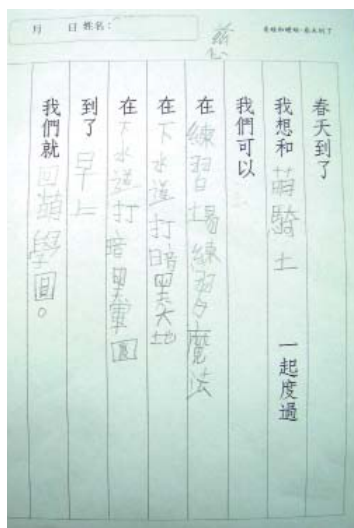 月 日 姓名：
慈
春天到了
我想和萌騎士 一起度過
我們可以
在練習場練習魔法
在下水道打暗黑大地
在下水道打暗黑軍團
到了早上
我們就回萌學園。